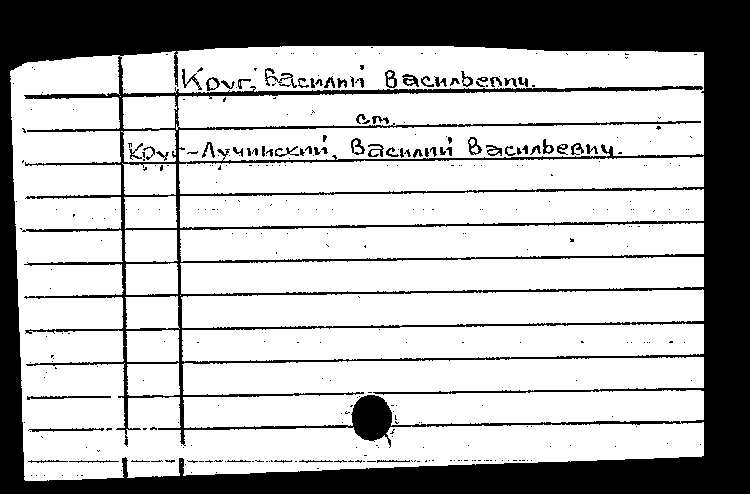 Круг, Василий Васильевич.
см.
Круг-Лучинский, Василий Васильевич.